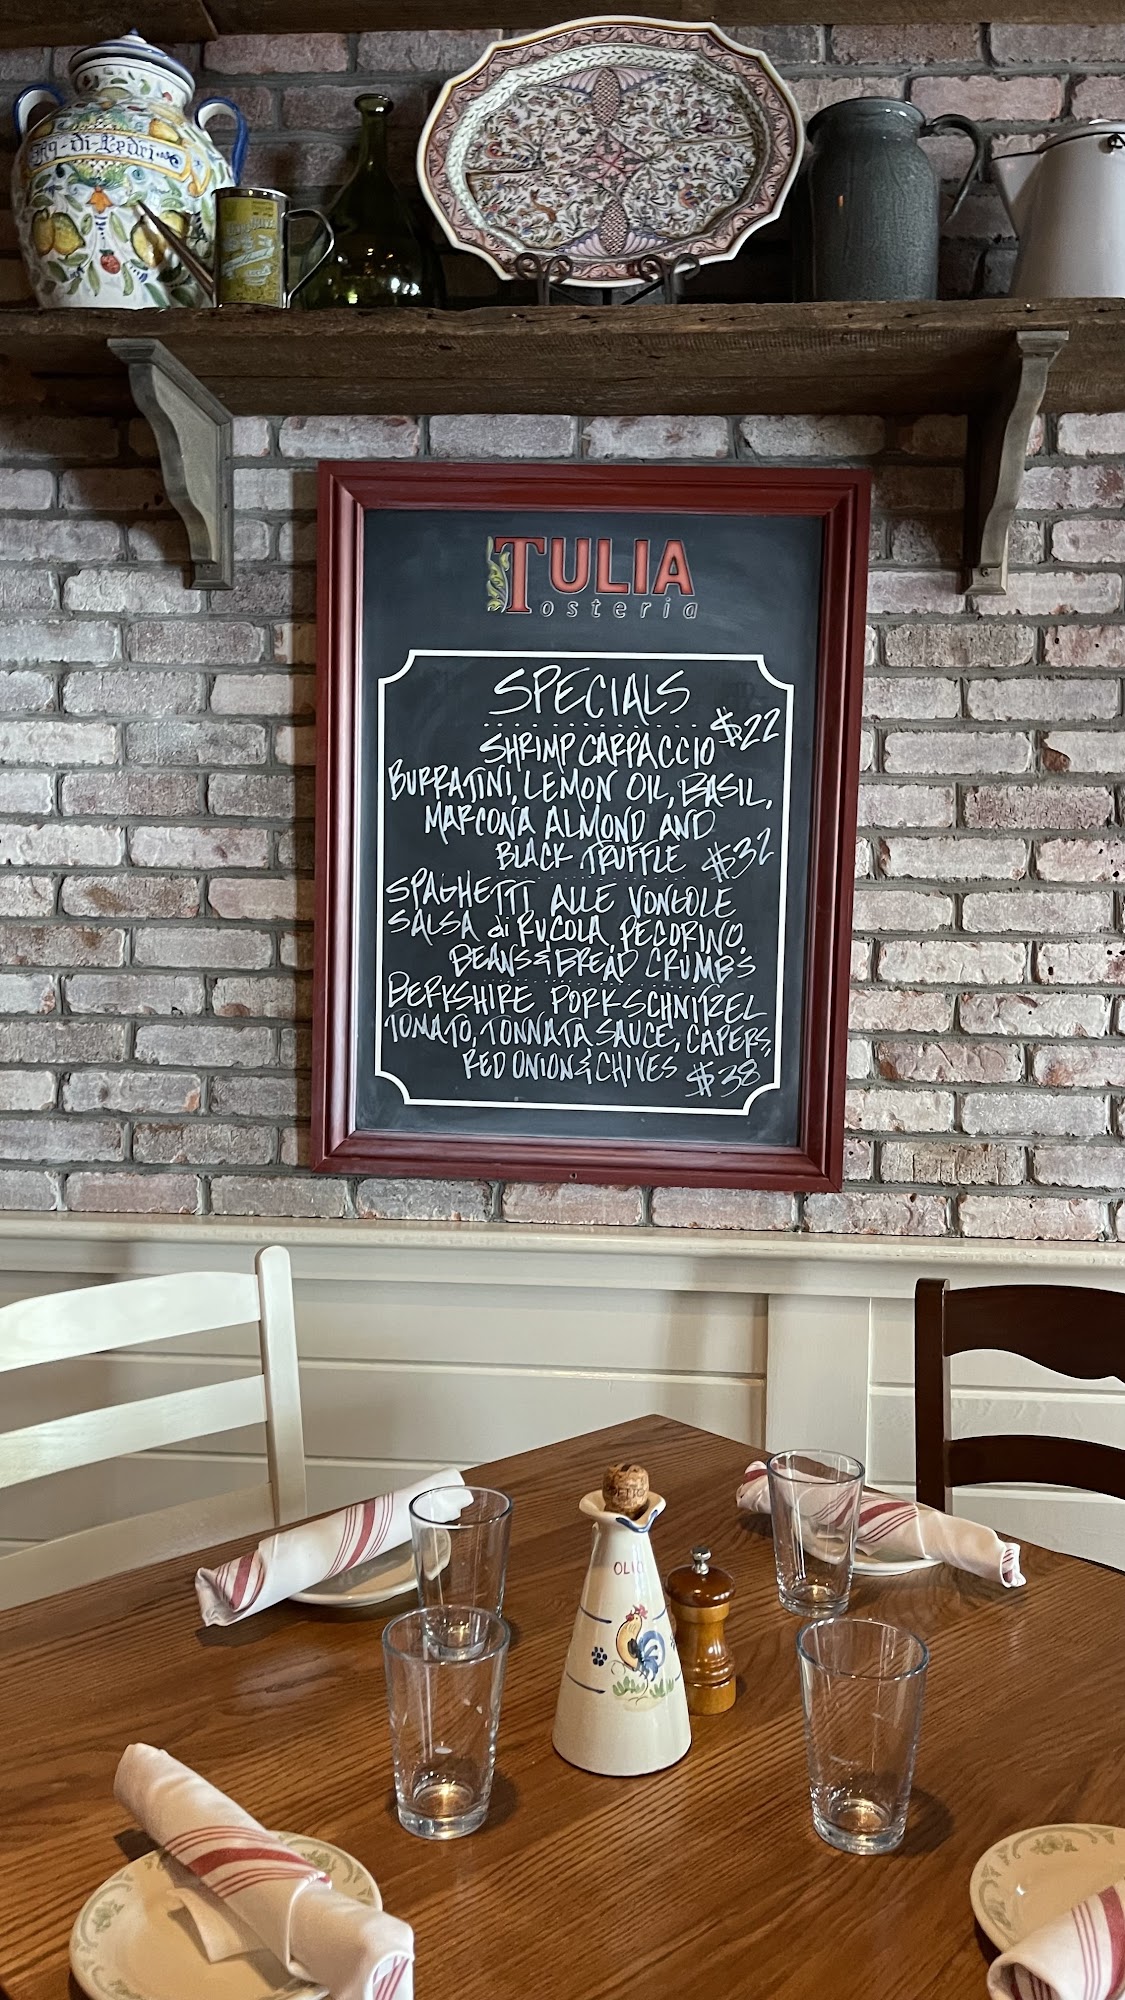 TULIA
osteria
SPECIALS
$22
SHRIMP CARPACCIO
BURRATINI, LEMON OIL, BASIL,
MARCONA ALMOND AND
BLACK TRUFFLE $32
SPAGHETTI ALLE VONGOLE
SALSA di RUCOLA, PECORINO,
BEANS & BREAD CRUMBS
BERKSHIRE PORK SCHNITZEL
TOMATO, TONNATA SAUCE, CAPERS,
RED ONION & CHIVES $38
OLIO